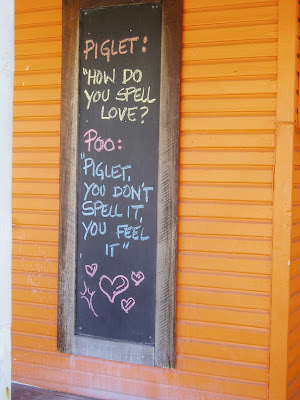 PIGLET:
"HOW DO
YOU SPELL
LOVE?
POO:
"PIGLET,
YOU DON'T
SPELL IT,
YOU FEEL
IT"